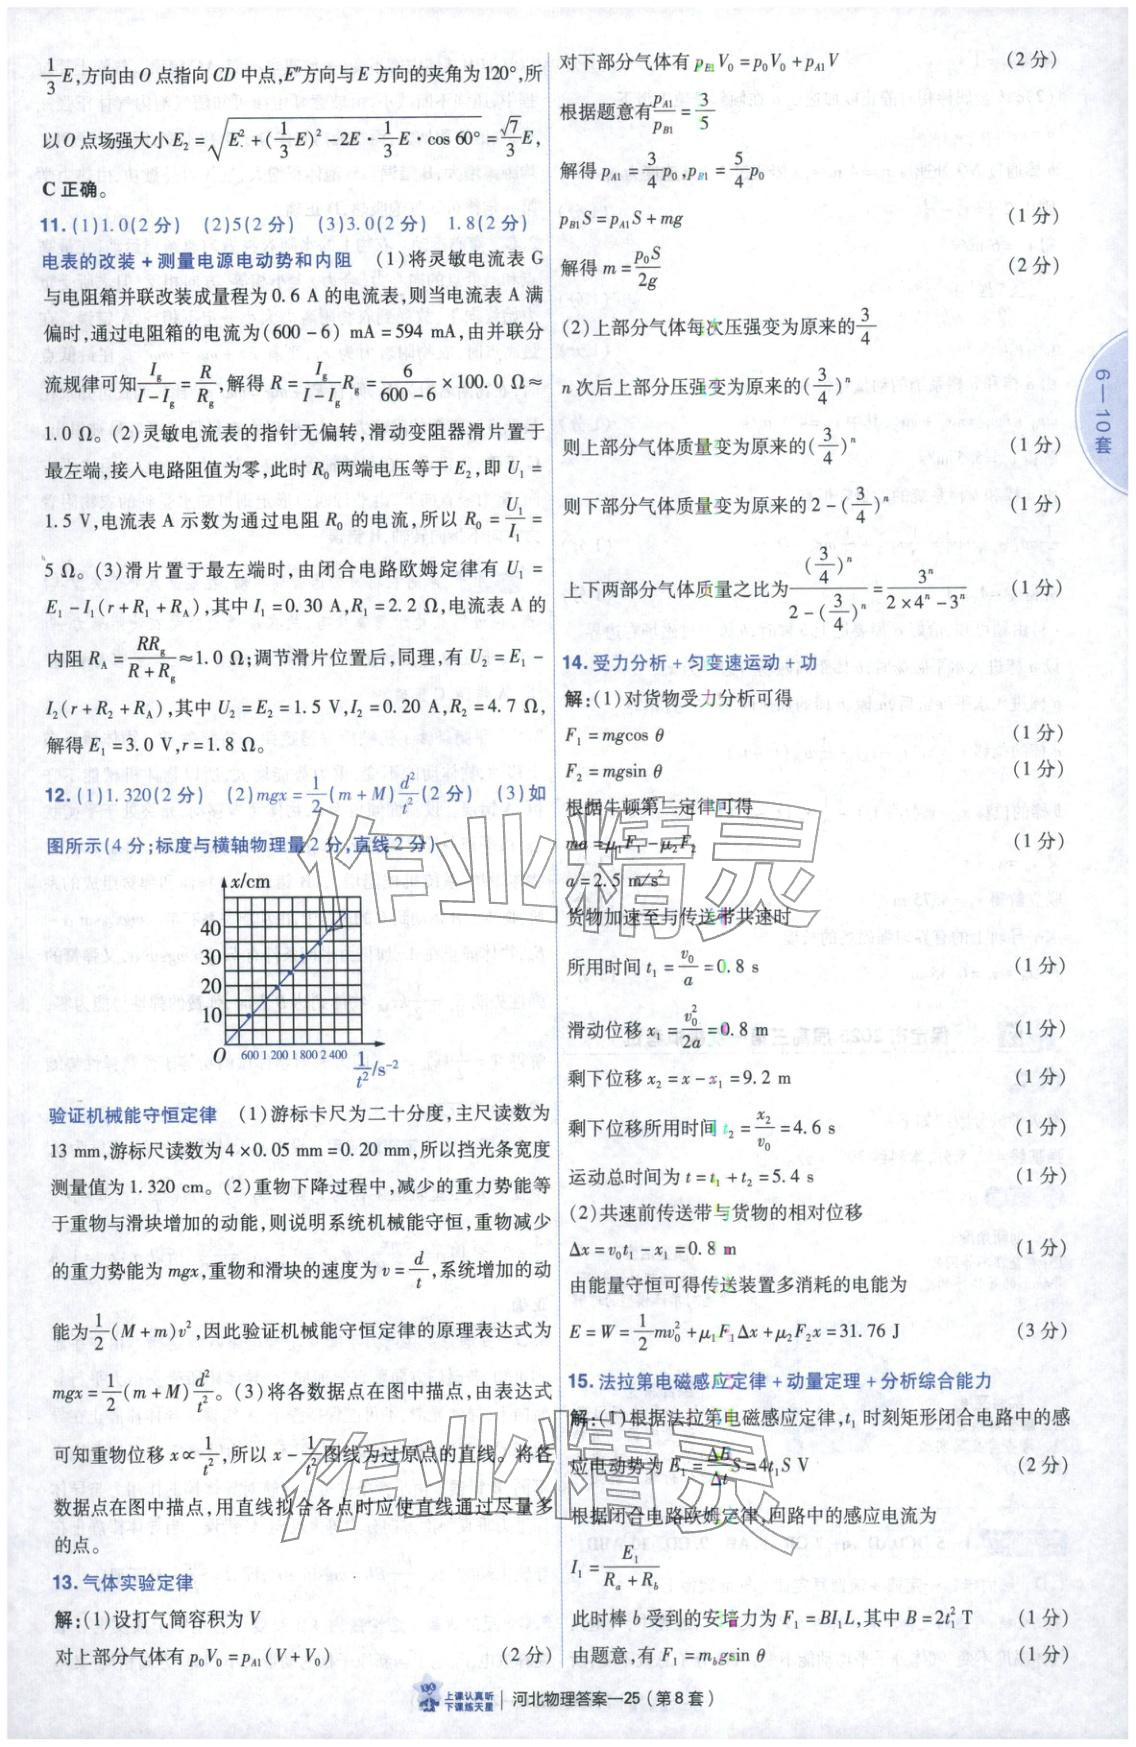 1/3 E,方向由 O 点指向 CD 中点,E″方向与 E 方向的夹角为 120°,所
以 O 点场强大小 E₂ = √(E² + (1/3 E)² − 2E · 1/3 E · cos 60°) = √7/3 E,
C 正确。
11. (1)1.0(2 分) (2)5(2 分) (3)3.0(2 分) 1.8(2 分)
电表的改装 + 测量电源电动势和内阻 (1)将灵敏电流表 G
与电阻箱并联改装成量程为 0.6 A 的电流表,则当电流表 A 满
偏时,通过电阻箱的电流为(600 − 6) mA = 594 mA,由并联分
流规律可知 I_g/(I − I_g) = R/R_g,解得 R = I_g/(I − I_g) R_g = 6/(600 − 6) × 100.0 Ω ≈
1.0 Ω。(2)灵敏电流表的指针无偏转,滑动变阻器滑片置于
最左端,接入电路阻值为零,此时 R₀ 两端电压等于 E₂,即 U₁ =
1.5 V,电流表 A 示数为通过电阻 R₀ 的电流,所以 R₀ = U₁/I₁ =
5 Ω。(3)滑片置于最左端时,由闭合电路欧姆定律有 U₁ =
E₁ − I₁(r + R₁ + R_A),其中 I₁ = 0.30 A,R₁ = 2.2 Ω,电流表 A 的
内阻 R_A = RR_g/(R + R_g) ≈ 1.0 Ω;调节滑片位置后,同理,有 U₂ = E₁ −
I₂(r + R₂ + R_A),其中 U₂ = E₂ = 1.5 V,I₂ = 0.20 A,R₂ = 4.7 Ω,
解得 E₁ = 3.0 V,r = 1.8 Ω。
12. (1)1.320(2 分) (2)mgx = 1/2 (m + M) d²/t² (2 分) (3)如
图所示(4 分;标度与横轴物理量 2 分,直线 2 分)
x/cm
40
30
20
10
O
600 1 200 1 800 2 400
1/t² /s⁻²
验证机械能守恒定律 (1)游标卡尺为二十分度,主尺读数为
13 mm,游标尺读数为 4 × 0.05 mm = 0.20 mm,所以挡光条宽度
测量值为 1.320 cm。(2)重物下降过程中,减少的重力势能等
于重物与滑块增加的动能,则说明系统机械能守恒,重物减少
的重力势能为 mgx,重物和滑块的速度为 v = d/t,系统增加的动
能为 1/2 (M + m)v²,因此验证机械能守恒定律的原理表达式为
mgx = 1/2 (m + M) d²/t²。(3)将各数据点在图中描点,由表达式
可知重物位移 x ∝ 1/t²,所以 x − 1/t² 图线为过原点的直线。将各
数据点在图中描点,用直线拟合各点时应使直线通过尽量多
的点。
13. 气体实验定律
解:(1)设打气筒容积为 V
对上部分气体有 p₀V₀ = p_A1(V + V₀) (2 分)
对下部分气体有 p_B1V₀ = p₀V₀ + p_A1V (2 分)
根据题意有 p_A1/p_B1 = 3/5
解得 p_A1 = 3/4 p₀,p_B1 = 5/4 p₀
p_B1S = p_A1S + mg (1 分)
解得 m = p₀S/2g (2 分)
(2)上部分气体每次压强变为原来的 3/4
n 次后上部分压强变为原来的(3/4)ⁿ
则上部分气体质量变为原来的(3/4)ⁿ (1 分)
则下部分气体质量变为原来的 2 − (3/4)ⁿ (1 分)
上下两部分气体质量之比为 (3/4)ⁿ/(2 − (3/4)ⁿ) = 3ⁿ/(2 × 4ⁿ − 3ⁿ) (1 分)
14. 受力分析 + 匀变速运动 + 功
解:(1)对货物受力分析可得
F₁ = mgcos θ (1 分)
F₂ = mgsin θ (1 分)
根据牛顿第二定律可得
ma = μ₁F₁ − μ₂F₂ (1 分)
a = 2.5 m/s²
货物加速至与传送带共速时
所用时间 t₁ = v₀/a = 0.8 s (1 分)
滑动位移 x₁ = v₀²/2a = 0.8 m (1 分)
剩下位移 x₂ = x − x₁ = 9.2 m (1 分)
剩下位移所用时间 t₂ = x₂/v₀ = 4.6 s (1 分)
运动总时间为 t = t₁ + t₂ = 5.4 s (1 分)
(2)共速前传送带与货物的相对位移
Δx = v₀t₁ − x₁ = 0.8 m (1 分)
由能量守恒可得传送装置多消耗的电能为
E = W = 1/2 mv₀² + μ₁F₁Δx + μ₂F₂x = 31.76 J (3 分)
15. 法拉第电磁感应定律 + 动量定理 + 分析综合能力
解:(1)根据法拉第电磁感应定律,t₁ 时刻矩形闭合电路中的感
应电动势为 E₁ = ΔB/Δt S = 4t₁S V (2 分)
根据闭合电路欧姆定律,回路中的感应电流为
I₁ = E₁/(R_a + R_b)
此时棒 b 受到的安培力为 F₁ = BI₁L,其中 B = 2t₁² T (1 分)
由题意,有 F₁ = m_b gsin θ (1 分)
6—10套
作业精灵
作业精灵
上课认真听
下课练天星
河北物理答案—25(第 8 套)